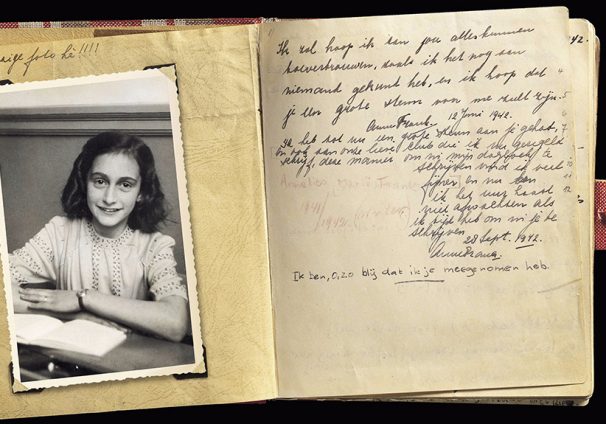 aige foto hè!!!!
Ik zal hoop ik aan jou alles kunnen
toevertrouwen, zoals ik het nog aan
niemand gekund heb, en ik hoop dat
je een grote steun voor me zult zijn.
Anne Frank. 12 Juni 1942.
Ik heb tot nu een grote steun aan je gehad,
en ook aan onze lieve club die ik nu geregeld
schrijf, deze manier om in mijn dagboek te
schrijven vind ik veel
fijner en nu kan
ik het uur haast
niet afwachten als
ik tijd heb om in je te
schrijven.
28 Sept. 1942.
Anne Frank.
Ik ben, o, zo blij dat ik je meegenomen heb.
1942.